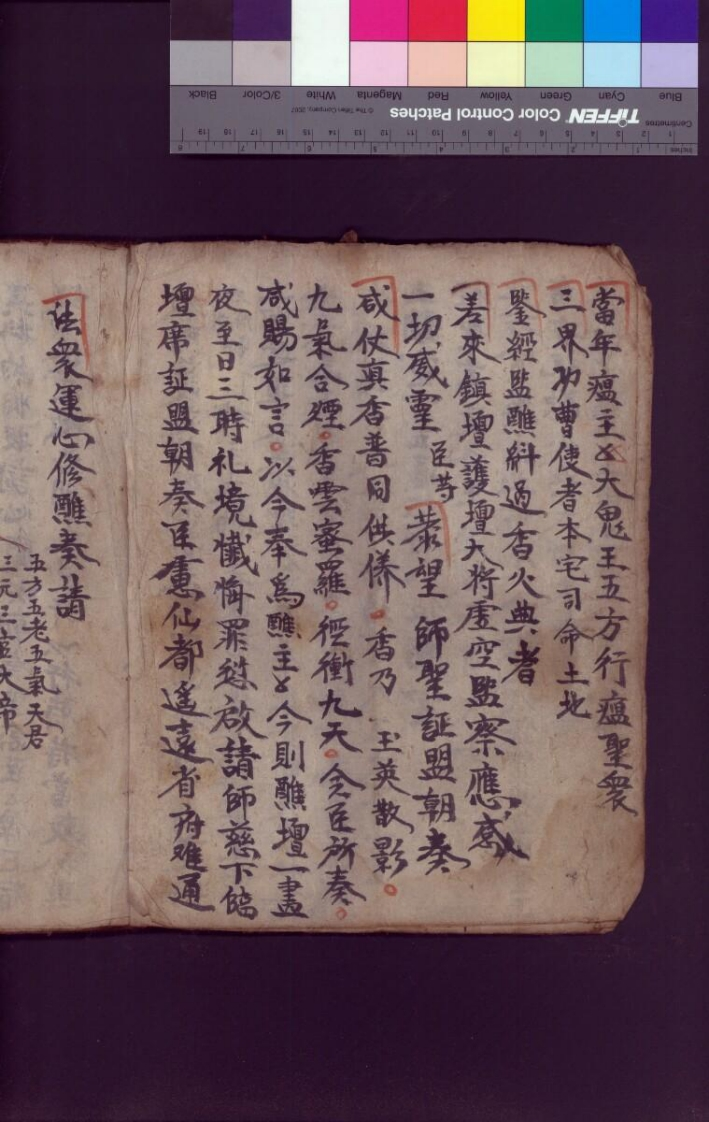 當年瘟主〻大鬼王五方行瘟聖衆
三界功曹使者本宅司命土地
鑒經監醮糾過香火典者
若來鎮壇護壇大將虛空監察應感
一切威靈 臣等 恭望 師聖証盟朝奏
咸仗真香普同供養 香乃 玉英散影
九氣合煙香雲密羅徑衝九天 令臣所奏
咸賜如言以今奉為醮主〻今則醮壇一晝
夜至日三時礼境懺悔罪愆啟請師慈下臨
壇席証盟朝奏臣慮仙都遙遠省府难通
法衆運心修醮奏請
五方五老五氣天君
三元三官大帝
Blue Cyan Green Yellow Red Magenta White 3/Color Black
TIFFEN Color Control Patches © The Tiffen Company, 2007
Centimetres 1 2 3 4 5 6 7 8 9 10 11 12 13 14 15 16 17 18 19
Inches 1 2 3 4 5 6 7 8